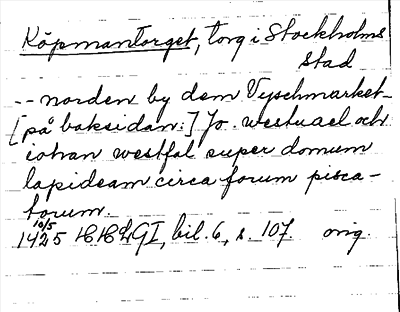 Köpmantorget, torg i Stockholms
stad
-- norden by dem Vyschmarket
[på baksidan:] Jo. westuael och
iohan westfal super domum
lapideam circa forum pisca-
torum.
10/5
1425 HHLGI, bil. 6, s. 107. orig.